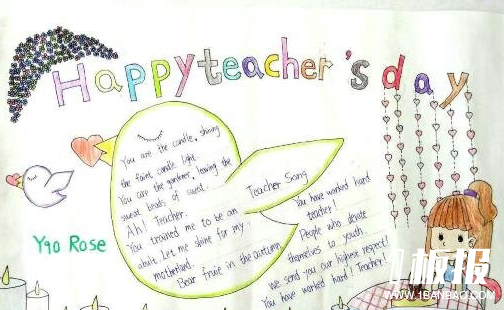 Happy teacher's day
You are the candle, shining
the faint candle light.
You are the gardner, leaving the
sweat beads of sweat.
Ah! Teacher.
You trained me to be an
abult. Let me shine for my
motherland.
Bear fruie in the autumn
Teacher Song
You have worked hard
teacher!
People who denate
themselves to youth.
we send you our highest respect!
You have worked hard! Teacher!
Yao Rose
板报
WWW.1BANBAO.COM